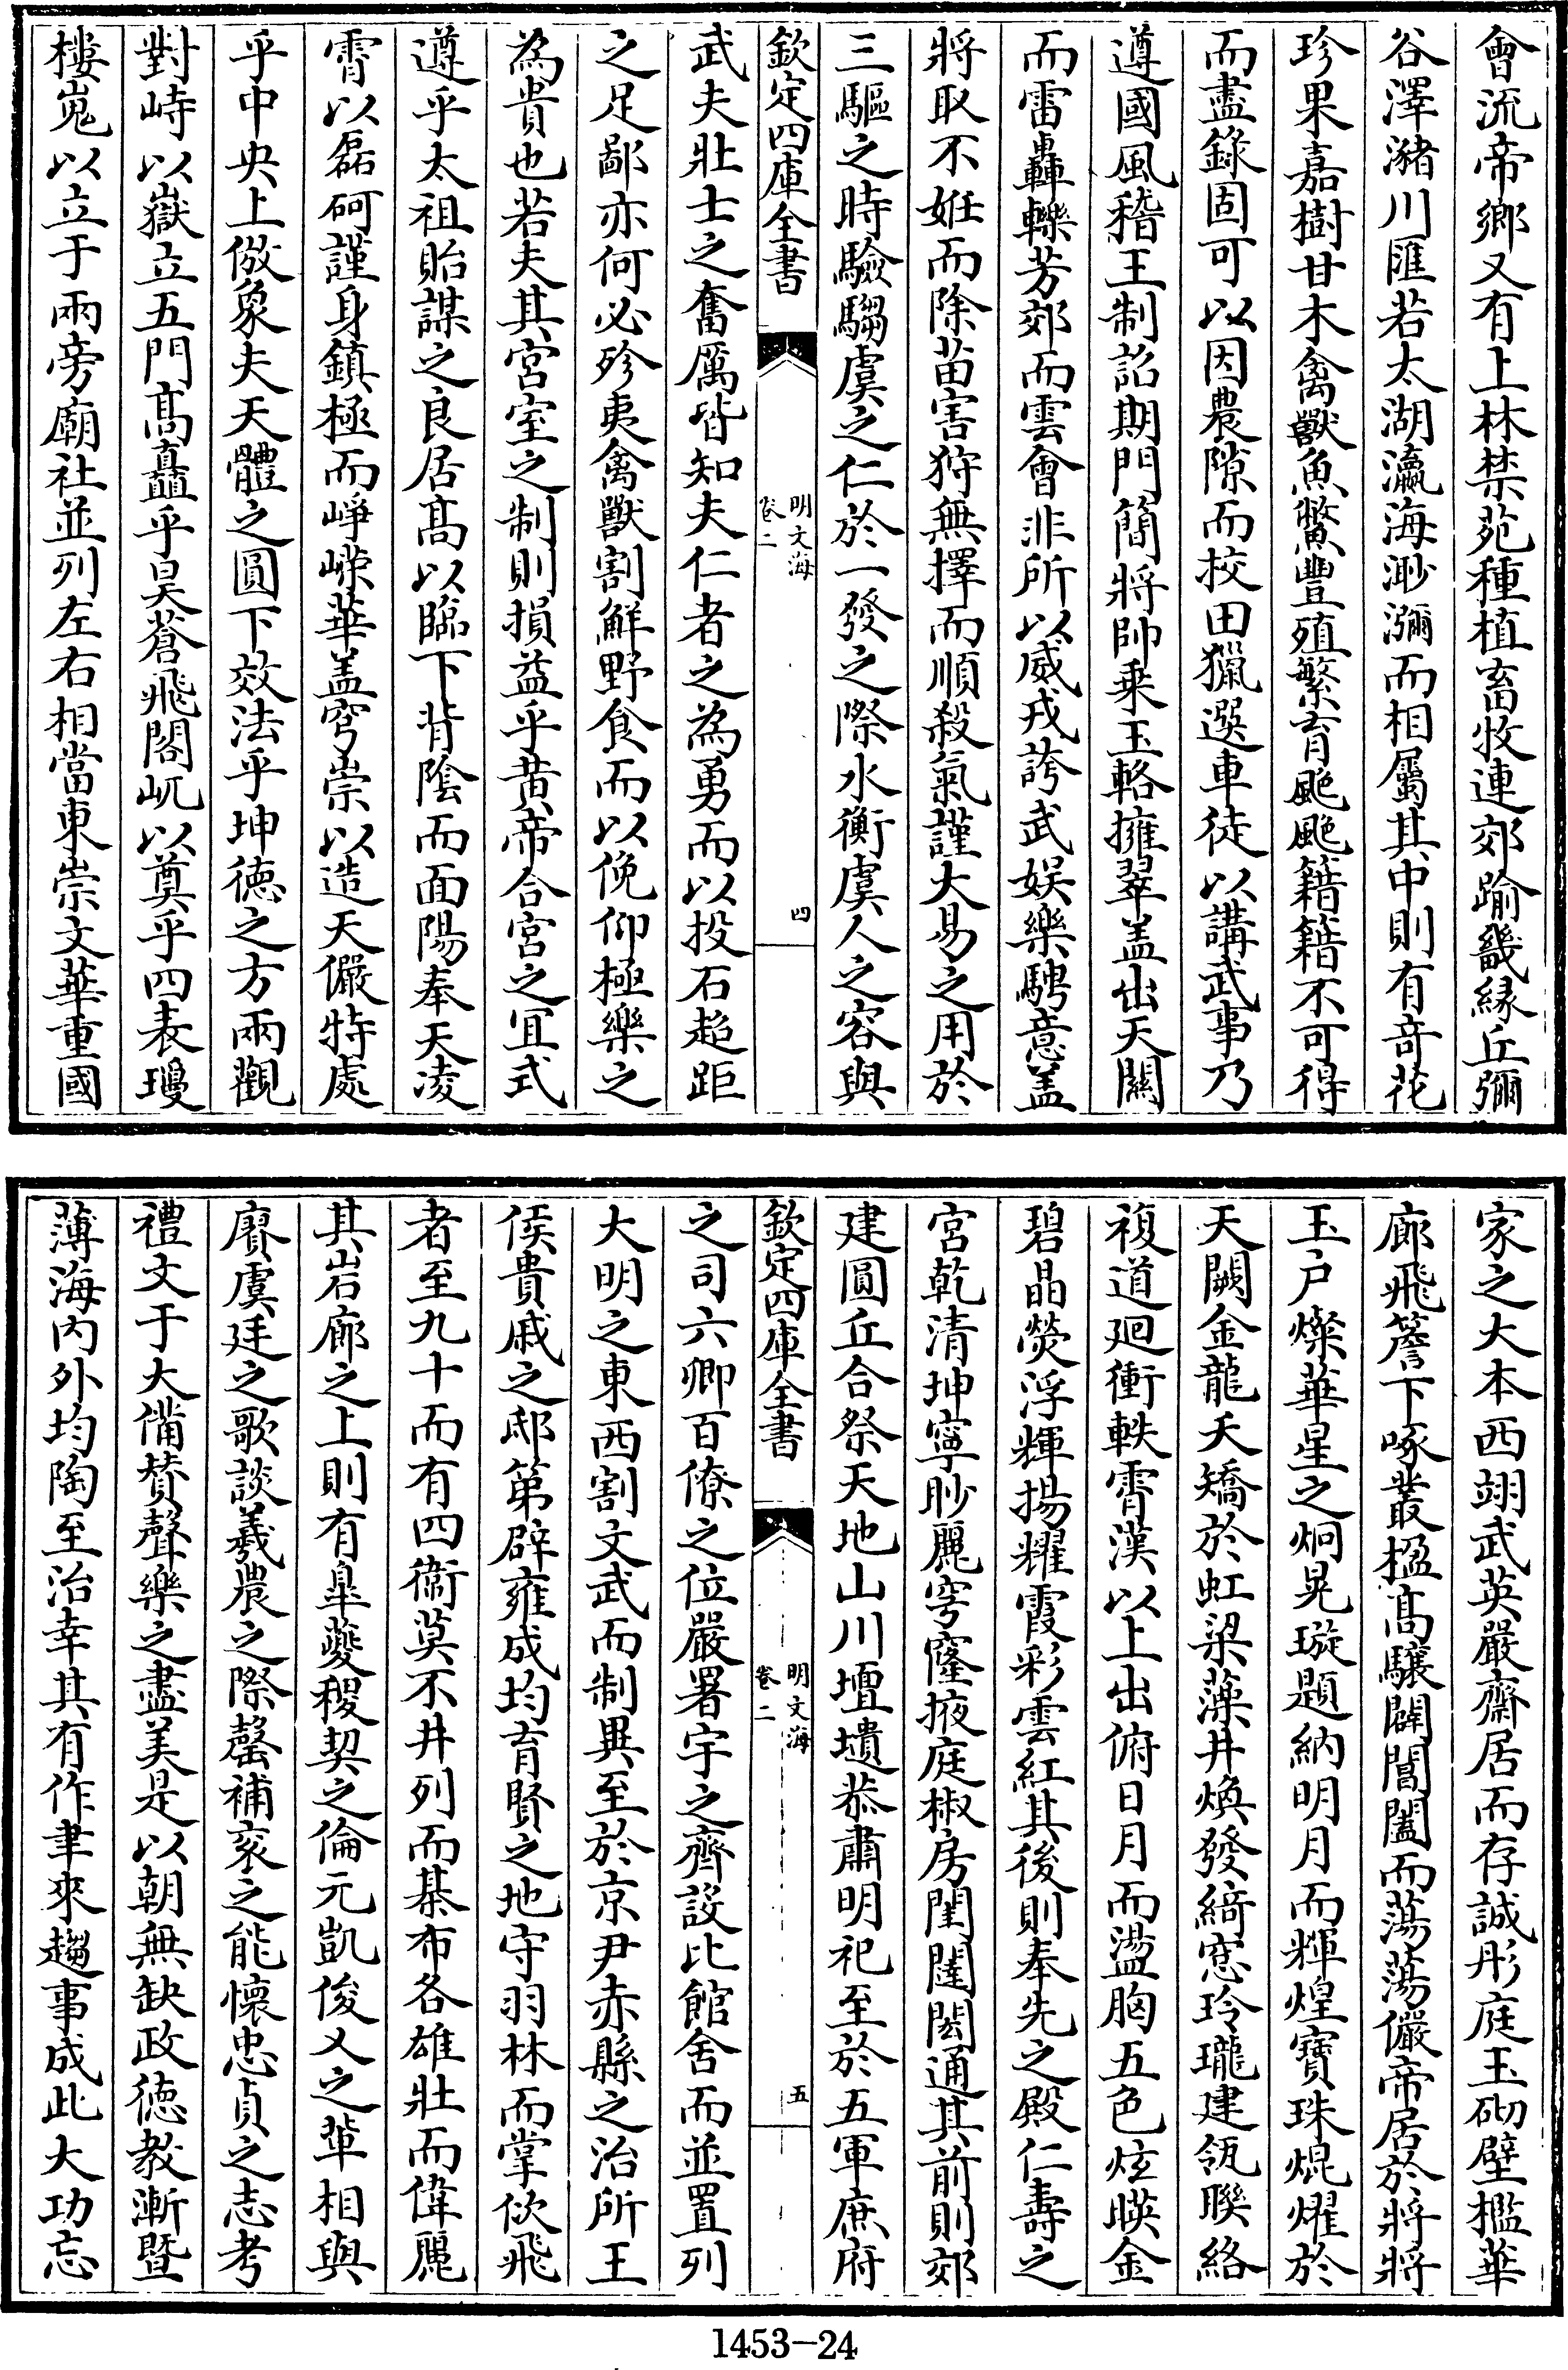 會流帝鄉又有上林禁苑種植畜牧連郊踰畿縁丘彌
谷澤瀦川匯若太湖瀛海渺瀰而相屬其中則有竒花
珍果嘉樹甘木禽獸魚鱉豐殖繁育颩颩籍籍不可得
而盡錄固可以因農隙而挍田獵選車徒以講武事乃
遵國風稽王制詔期門簡將帥乗玉輅擁翠盖出天關
而雷轟轢芳郊而雲會非所以威戎誇武娱樂騁意盖
將取不妊而除苗害狩無擇而順殺氣謹大易之用於
三驅之時驗騶虞之仁於一發之際水衡虞人之容與
欽定四庫全書
明文海
卷二
四
武夫壯士之奮厲皆知夫仁者之為勇而以投石超距
之足鄙亦何必殄夷禽獸割鮮野食而以俛仰極樂之
為貴也若夫其宮室之制則損益乎黃帝合宮之宜式
遵乎太祖貽謀之良居髙以臨下背陰而面陽奉天凌
霄以磊砢謹身鎮極而崢嶸華盖穹崇以造天儼特處
乎中央上倣象夫天體之圓下效法乎坤徳之方兩觀
對峙以嶽立五門髙矗乎昊蒼飛閣屼以奠乎四表瓊
樓嵬以立于兩旁廟社並列左右相當東崇文華重國
家之大本西翊武英嚴齋居而存誠彤庭玉砌壁檻華
廊飛簷下啄叢楹髙驤闢閶闔而蕩蕩儼帝居於將將
玉戶燦華星之炯晃璇題納明月而輝煌寶珠焜燿於
天闕金龍夭矯於虹梁藻井煥發綺窓玲瓏建瓴聮絡
複道廻衝軼霄漢以上出俯日月而盪胸五色炫暎金
碧晶熒浮輝揚耀霞彩雲紅其後則奉先之殿仁壽之
宮乾清坤寧眇麗穹窿掖庭椒房閨闥閎通其前則郊
建圓丘合祭天地山川壇壝恭肅明祀至於五軍庶府
欽定四庫全書
明文海
卷二
五
之司六卿百僚之位嚴署宇之齊設比館舍而並置列
大明之東西割文武而制異至於京尹赤縣之治所王
侯貴戚之邸第辟雍成均育賢之地守羽林而掌佽飛
者至九十而有四衞莫不井列而棊布各雄壯而偉麗
其岩廊之上則有臯夔稷契之倫元凱俊乂之輩相與
賡虞廷之歌談羲農之際罄補衮之能懷忠貞之志考
禮文于大備賛聲樂之盡美是以朝無缺政徳教漸暨
薄海内外均陶至治幸其有作聿來趨事成此大功忘
1453-24